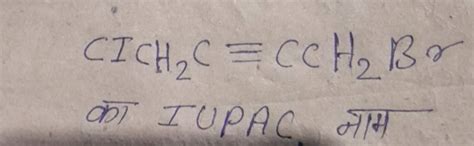 ClCH₂C≡CCH₂Br
का IUPAC नाम